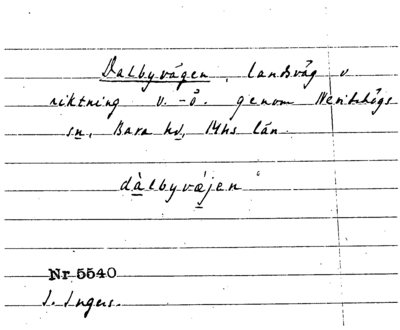 Dalbyvägen, landsväg v
riktning v.-ö. genom Merihögs
sn, Bara hd, Mhs län.
dàlbyvæjen
Nr 5540
I. Ingers.